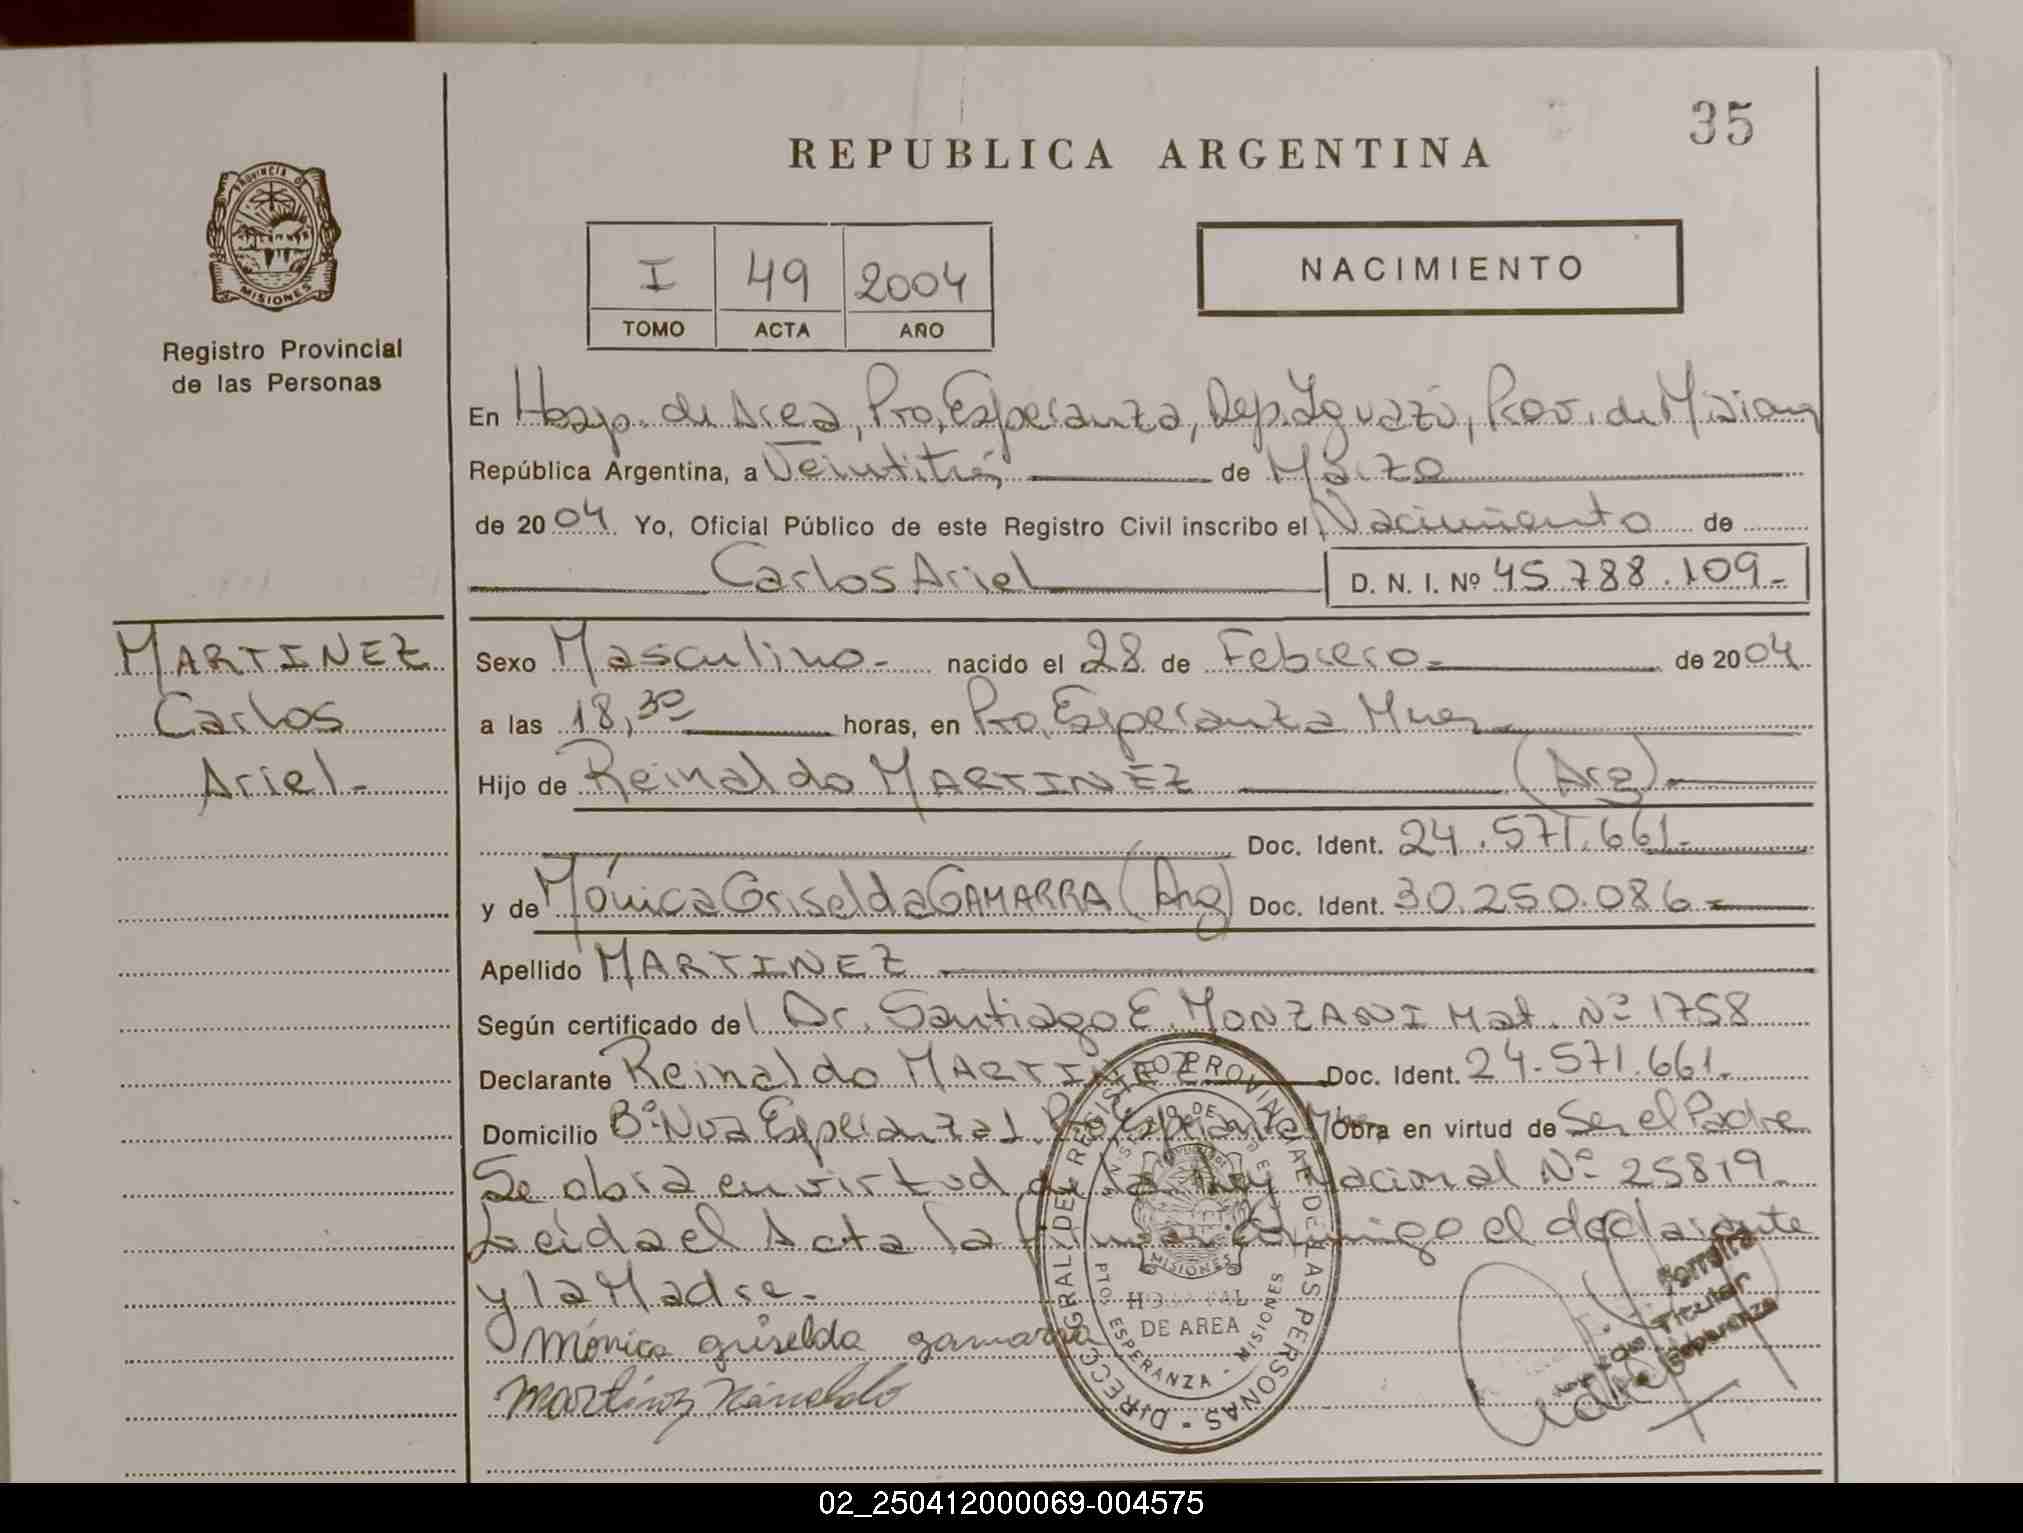 35
REPUBLICA ARGENTINA
PROVINCIA DE
MISIONES
Registro Provincial
de las Personas
I 49 2004
TOMO ACTA AÑO
NACIMIENTO
En Hosp. de Area, Pto. Esperanza, Dep. Iguazú, Prov. de Misiones
República Argentina, a Veintitrés de Marzo
de 2004 Yo, Oficial Público de este Registro Civil inscribo el Nacimiento de
Carlos Ariel D. N. I. Nº 45.788.109.-
MARTINEZ
Carlos
Ariel.-
Sexo Masculino.- nacido el 28 de Febrero.- de 2004
a las 18,30 horas, en Pto. Esperanza Mnes
Hijo de Reinaldo MARTINEZ (Arg)
Doc. Ident. 24.571.661.-
y de Mónica Griselda GAMARRA (Arg) Doc. Ident. 30.250.086.-
Apellido MARTINEZ
Según certificado del Dr. Santiago E. MONZANI Mat. Nº 1758
Declarante Reinaldo MARTINEZ Doc. Ident. 24.571.661.-
Domicilio Bº Nva Esperanza 1 Pto Esperanza Mnes Obra en virtud de Ser el Padre
Se obra en virtud de la Ley Nacional Nº 25819.
Leída el Acta la firman conmigo el declarante
y la Madre.-
Mónica griselda gamarra
Martinez Reinaldo
DIRECC. GRAL. DEL REGISTRO PROVINCIAL DE LAS PERSONAS
MINISTERIO DE
PROVINCIA DE
MISIONES
HOSPITAL
DE AREA
PTO. ESPERANZA - MISIONES
Ferreira
Titular
Esperanza
02_250412000069-004575